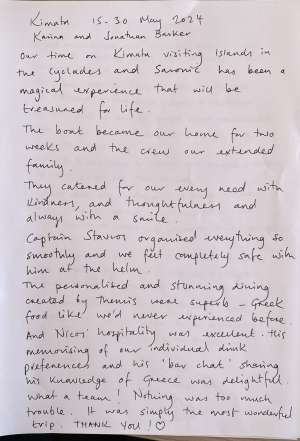 Kimata 15-30 May 2024
Karina and Jonathan Barker
Our time on Kimata visiting islands in
the Cyclades and Saronic has been a
magical experience that will be
treasured for life.
The boat became our home for two
weeks and the crew our extended
family.
They catered for our every need with
kindness, and thoughtfulness and
always with a smile.
Captain Stavros organised everything so
smoothly and we felt completely safe with
him at the helm.
The personalised and stunning dining
created by Themis were superb - Greek
food like we'd never experienced before.
And Nicos' hospitality was excellent. His
memorising of our individual drink
preferences and his 'bar chat' sharing
his knowledge of Greece was delightful.
What a team! Nothing was too much
trouble. It was simply the most wonderful
trip. THANK YOU! ♡